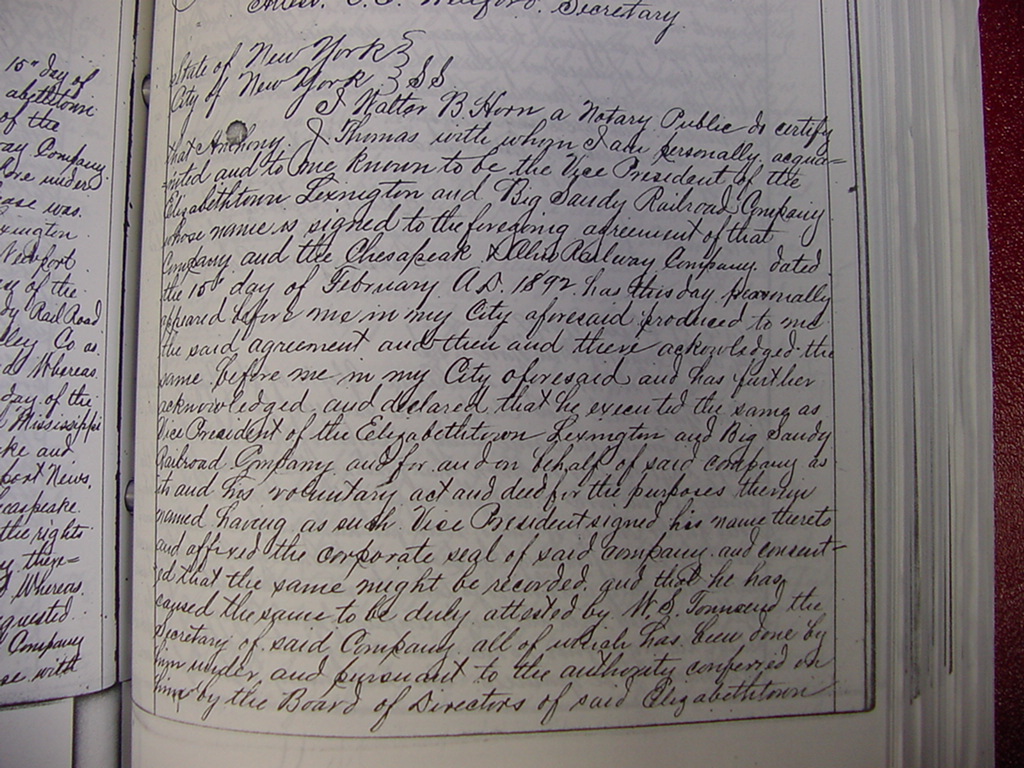 15" day of
abethtown
of the
ay Company
fore under
ease was
exington
Newport
y of the
dy Rail Road
lley Co as
d Whereas
day of the
d Mississippi
ke and
port News,
esapeake
the rights
y there=
d Whereas
quested
Company
se with
Attest. Secretary
State of New York }
City of New York } SS
I Walter B. Horn a Notary Public do certify
that Anthony J Thomas with whom I am personally acqua=
=inted and to me known to be the Vice President of the
Elizabethtown Lexington and Big Sandy Railroad Company
whose name is signed to the foregoing agreement of that
Company and the Chesapeak & Ohio Railway Company dated
the 15th day of February A.D. 1892 has this day personally
appeared before me in my City aforesaid produced to me
the said agreement and then and there acknowledged the
same before me in my City aforesaid and has further
acknowledged and declared that he executed the same as
Vice President of the Elizabethtown Lexington and Big Sandy
Railroad Company and for and on behalf of said company as
its and his voluntary act and deed for the purposes therein
named having as such Vice President signed his name thereto
and affixed the corporate seal of said company and consent=
ed that the same might be recorded. and that he has
caused the same to be duly attested by W. S. Townsend the
Secretary of said Company all of which has been done by
him under, and pursuant to the authority conferred on
him by the Board of Directors of said Elizabethtown